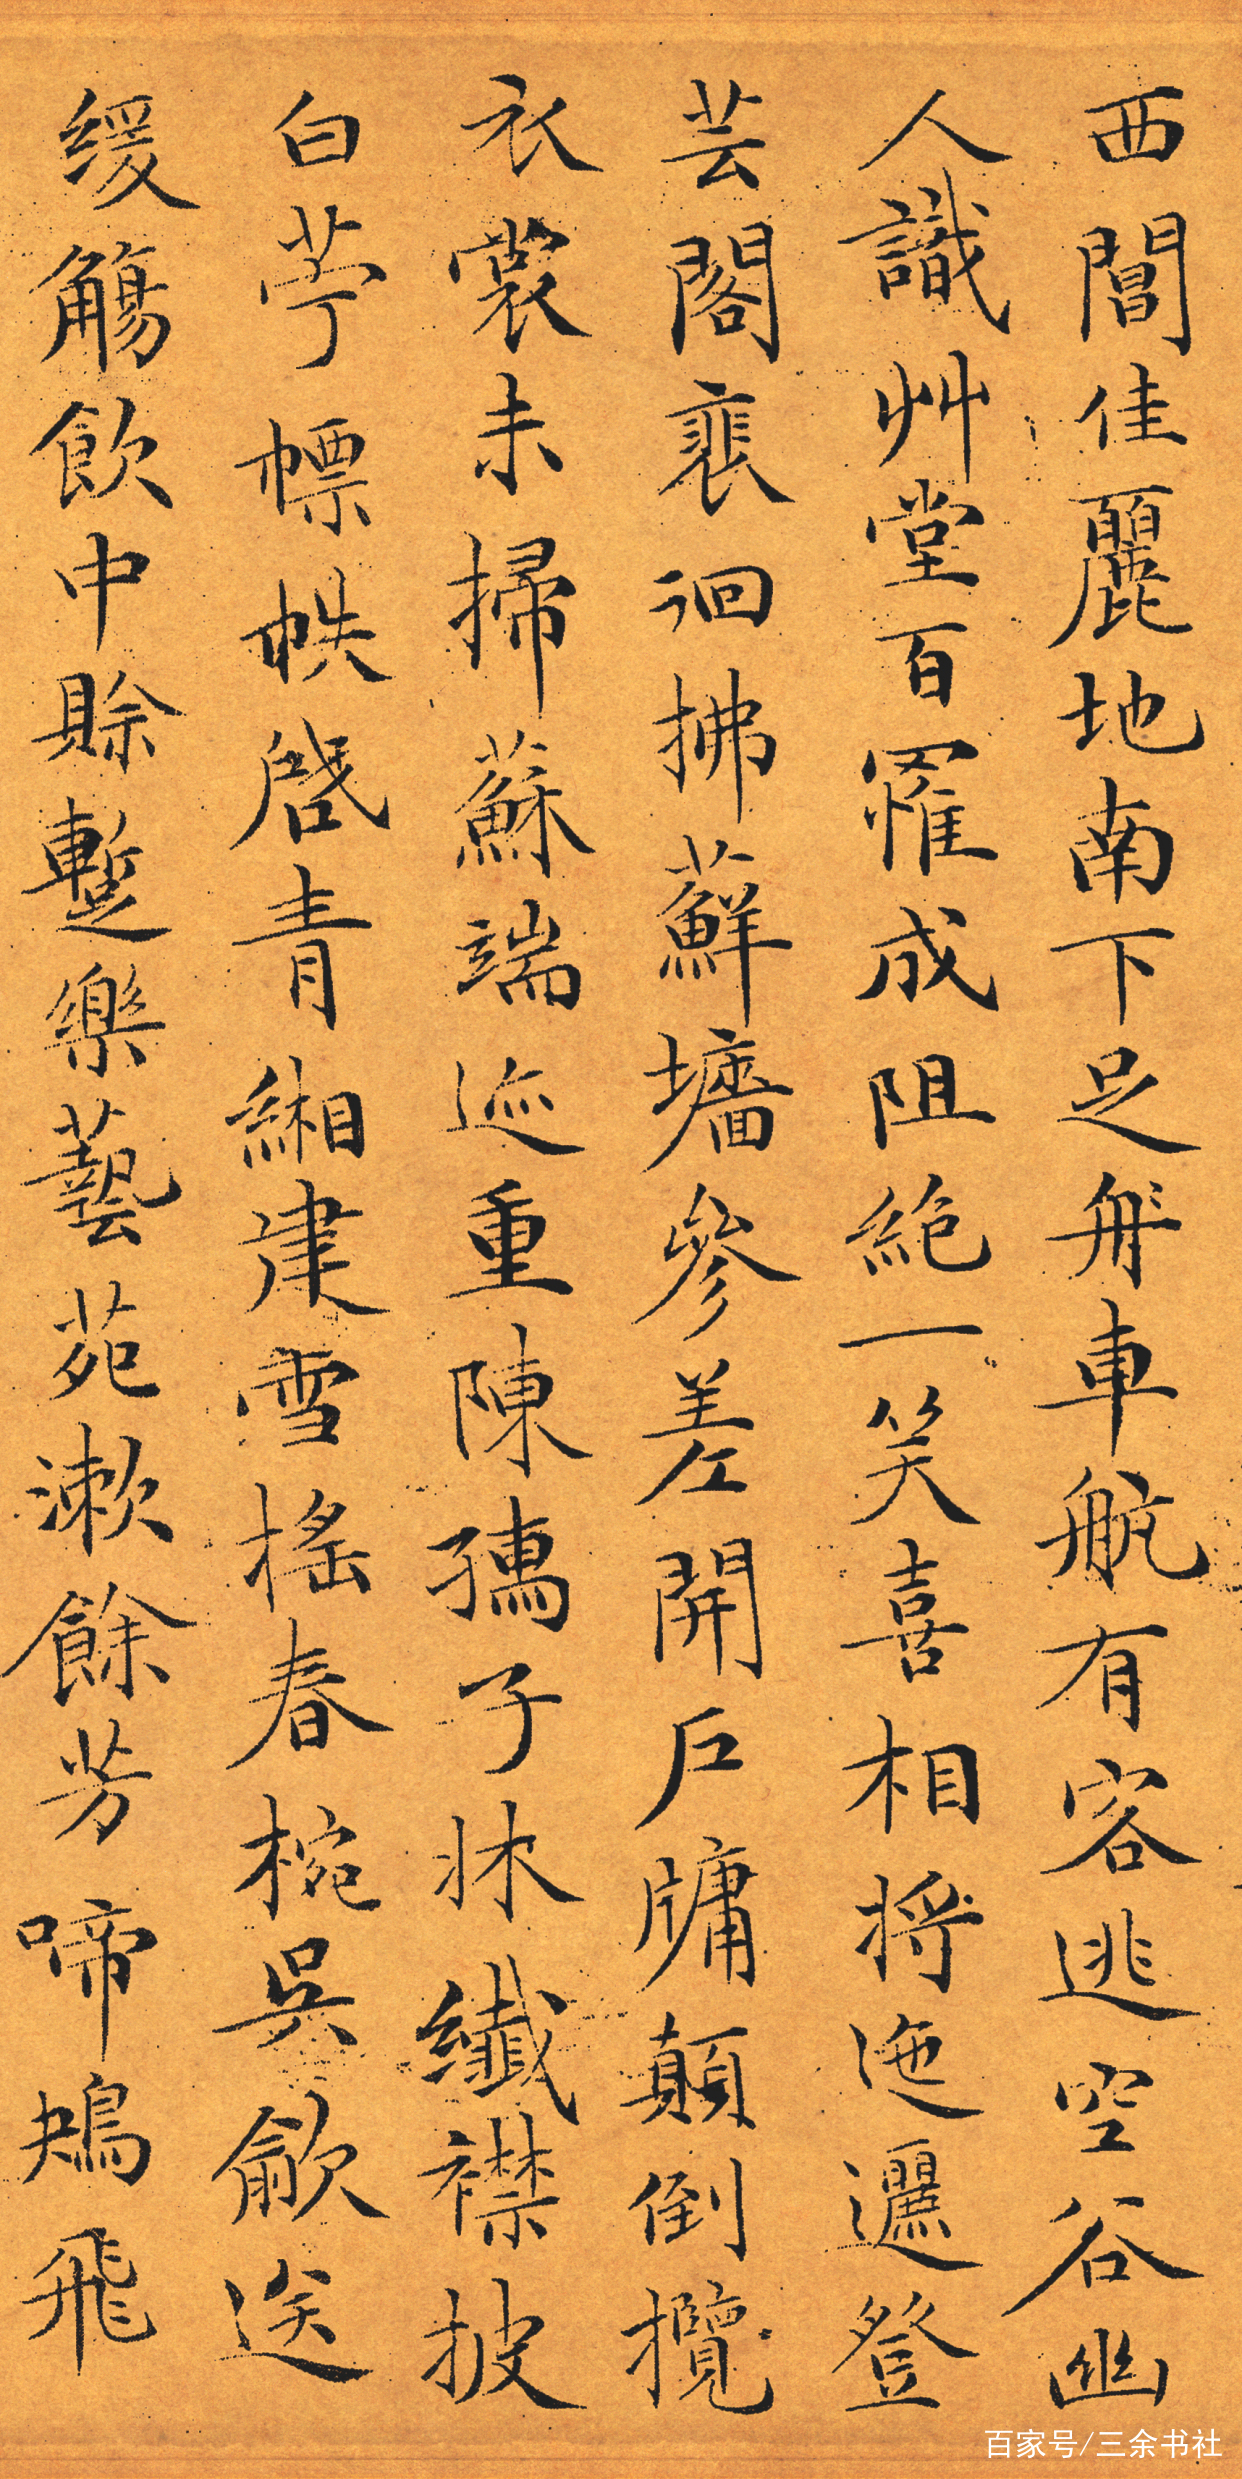 西閶佳麗地南下足舟車航有客逃空谷幽
人識艸堂百罹成阻絶一笑喜相將迤邐登
芸閣裴徊拂蘚墻參差開戶牖顛倒攬
衣裳未掃蘇端迹重陳孺子牀纖襟披
白苧幖帙啓青緗建雪搖春椀吳歈送
緩觴飲中賒蹔樂藝苑漱餘芳啼鴂飛
百家号/三余书社